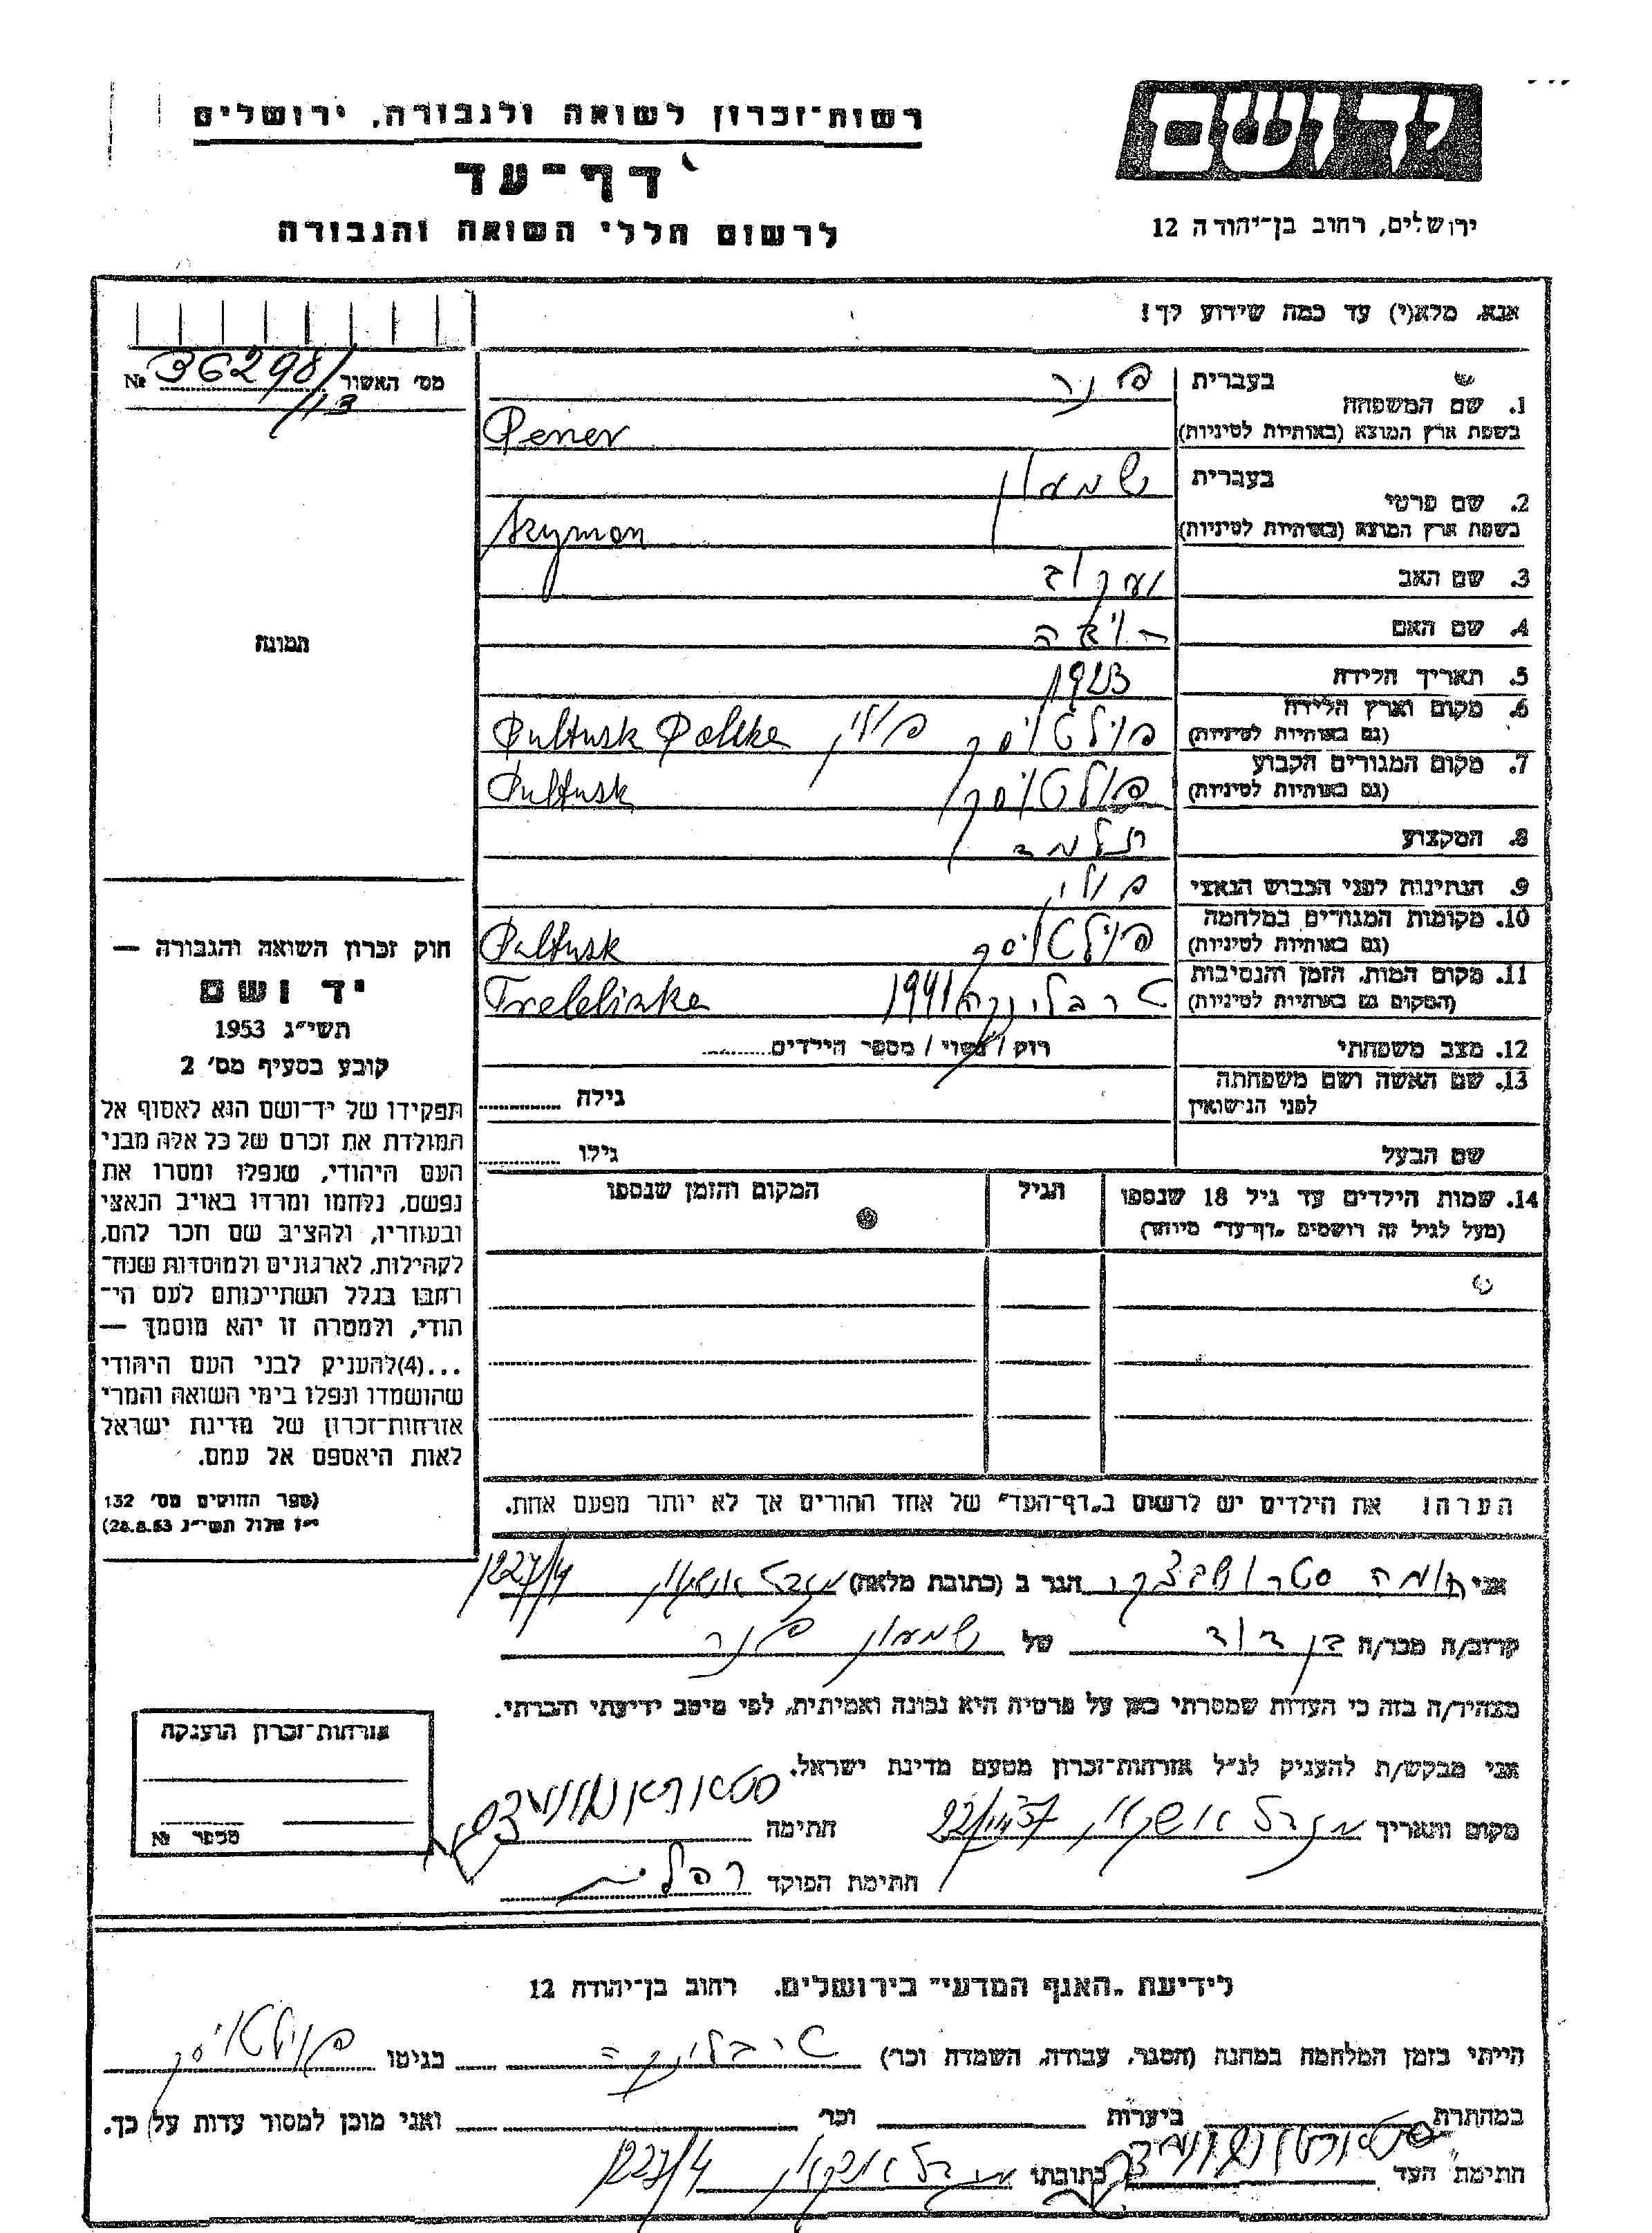 רשות־זכרון לשואה ולגבורה, ירושלים
יד ושם
דף־עד
לרשום חללי השואה והגבורה
ירושלים, רחוב בן־יהודה 12
אנא, מלא(י) עד כמה שידוע לך!
מס׳ האשור № 36298/13
1. שם המשפחה בעברית פנר
בשפת ארץ המוצא (באותיות לטיניות) Pener
2. שם פרטי בעברית שמעון
בשפת ארץ המוצא (באותיות לטיניות) Szymon
3. שם האב יעקב
4. שם האם
5. תאריך הלידה 1923
6. מקום וארץ הלידה (גם באותיות לטיניות) פולטוסק פולין Pultusk Polska
7. מקום המגורים הקבוע (גם באותיות לטיניות) פולטוסק Pultusk
8. המקצוע תלמד
9. הנתינות לפני הכבוש הנאצי פולני
10. מקומות המגורים במלחמה (גם באותיות לטיניות) פולטוסק Pultusk
11. מקום המות, הזמן והנסיבות (המקום גם באותיות לטיניות) טרבלינקה 1941 Treblinka
12. מצב משפחתי רווק / נשוי / מספר הילדים
13. שם האשה ושם משפחתה לפני הנישואין גילה
שם הבעל גילו
14. שמות הילדים עד גיל 18 שנספו (מעל לגיל זה רושמים „דף־עד״ מיוחד) הגיל המקום והזמן שנספו
הערה! את הילדים יש לרשום ב„דף־העד״ של אחד ההורים אך לא יותר מפעם אחת.
תמונה
חוק זכרון השואה והגבורה —
יד ושם
תשי״ג 1953
קובע בסעיף מס׳ 2
תפקידו של יד־ושם הוא לאסוף אל
המולדת את זכרם של כל אלה מבני
העם היהודי, שנפלו ומסרו את
נפשם, נלחמו ומרדו באויב הנאצי
ובעוזריו, ולהציב שם וזכר להם,
לקהילות, לארגונים ולמוסדות שנח־
רבו בגלל השתייכותם לעם הי־
הודי, ולמטרה זו יהא מוסמך —
...(4)להעניק לבני העם היהודי
שהושמדו ונפלו בימי השואה והמרי
אזרחות־זכרון של מדינת ישראל
לאות היאספם אל עמם.
(ספר החוקים מס׳ 132
י״ז אלול תשי״ג 28.8.53)
אני הגר ב (כתובת מלאה) מגדל אשקלון 1227/4
קרוב/ה מכר/ה בן דוד של שמעון פנר
מצהיר/ה בזה כי העדות שמסרתי כאן על פרטיה היא נכונה ואמיתית, לפי מיטב ידיעתי והכרתי.
אני מבקש/ת להעניק לנ״ל אזרחות־זכרון מטעם מדינת ישראל.
מקום ותאריך מגדל אשקלון חתימה
חתימת הפוקד
אזרחות־זכרון הוענקה
מספר №
לידיעת „האגף המדעי״ בירושלים, רחוב בן־יהודה 12
הייתי בזמן המלחמה במחנה (הסגר, עבודה, השמדה וכר׳) טרבלינקה בגיטו
במחתרת ביערות וכר׳ ואני מוכן למסור עדות על כך.
חתימת העד כתובתי מגדל אשקלון 1227/4